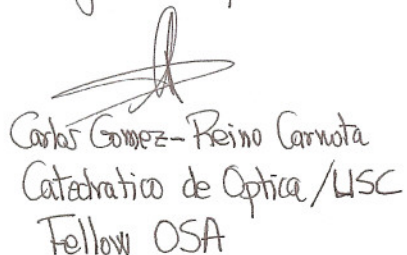 Carlos Gomez-Reino Carnota
Catedratico de Optica /USC
Fellow OSA